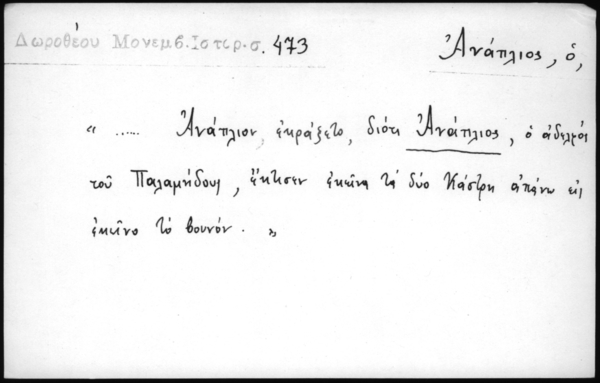 Δωροθέου Μονεμβ. Ιστορ. σ. 473
Ἀνάπλιος, ὁ,
“ ...... Ἀνάπλιον, ἐκράζετο, διότι Ἀνάπλιος, ὁ ἀδελφὸς
τοῦ Παλαμήδους, ἔκτισεν ἐκεῖνα τὰ δύο Κάστρη ἀπάνω εἰς
ἐκεῖνο τὸ βουνόν. „